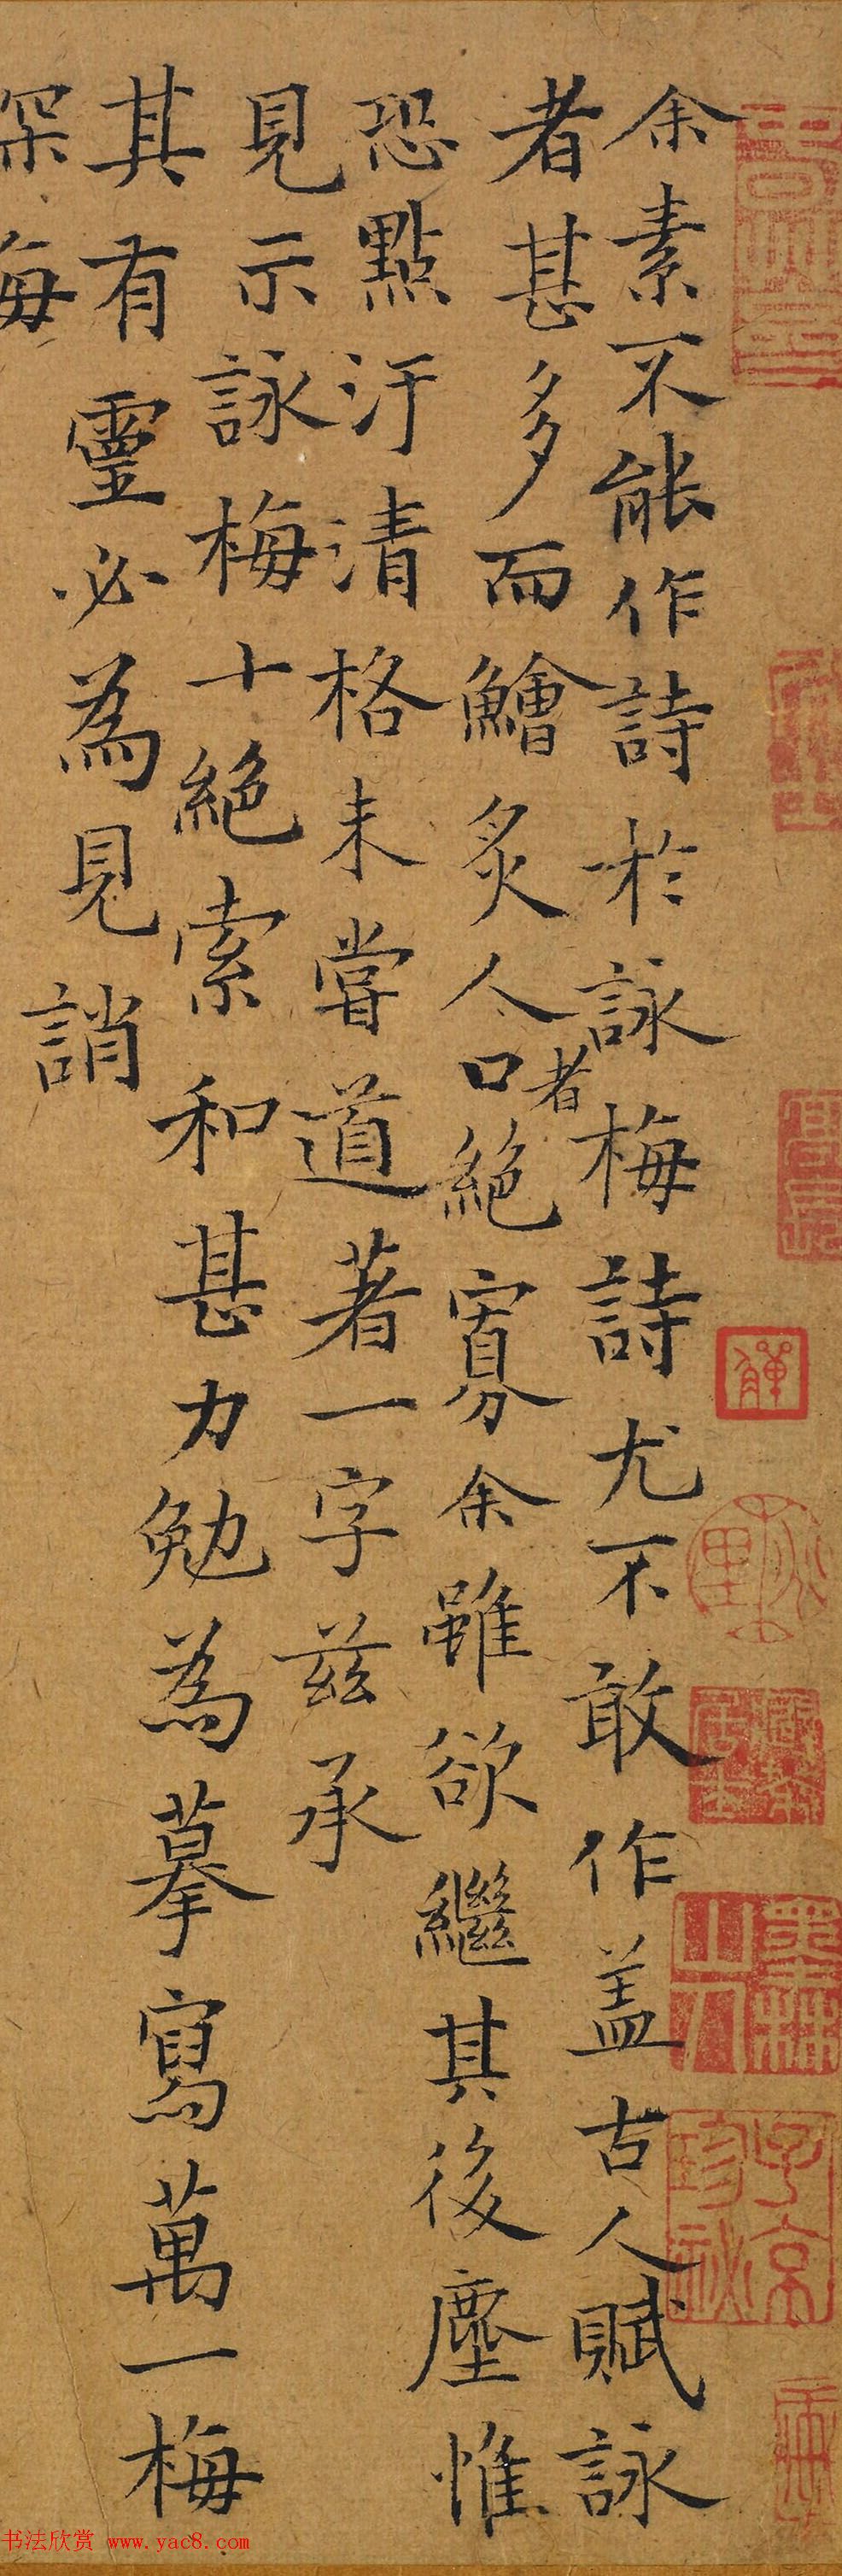 余素不能作詩於詠梅詩尤不敢作盖古人賦詠
者甚多而鱠炙人口者絕寡余雖欲繼其後塵惟
恐點汙清格未嘗道著一字兹承
見示詠梅十絕索和甚力勉為摹寫萬一梅
其有靈必為見誚
深梅
子京珍秘
墨林山人
书法欣赏 www.yac8.com